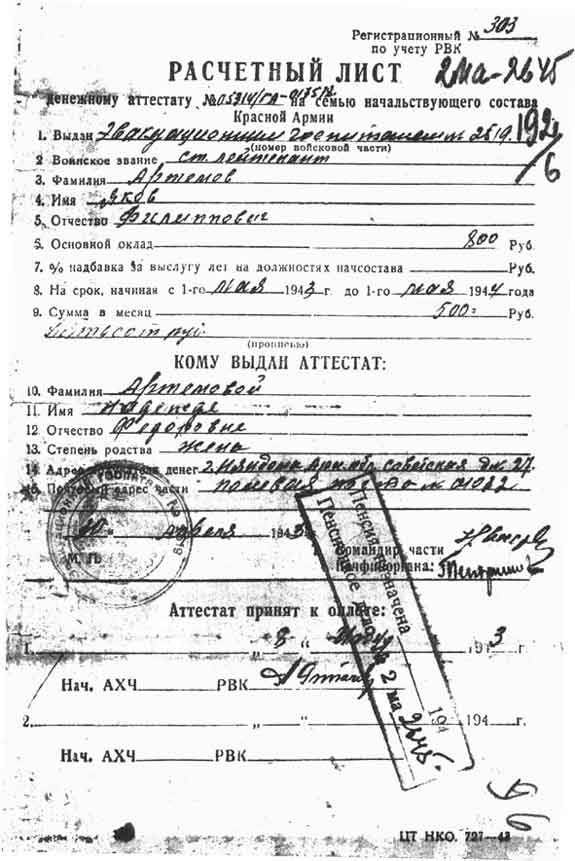 Регистрационный № 303
по учету РВК
РАСЧЕТНЫЙ ЛИСТ
2ма-2645
денежному аттестату № на семью начальствующего состава
Красной Армии
1. Выдан Эвакуационным госпиталем № 2519
(номер войсковой части)
192
6
2 Воинское звание ст. лейтенант
3. Фамилия Артемов
4. Имя Яков
5. Отчество Филиппович
6. Основной оклад 800 Руб.
7. % надбавка за выслугу лет на должностях начсостава Руб.
8. На срок, начиная с 1-го мая 1943 г. до 1-го мая 1944 года
9. Сумма в месяц 500= Руб.
пятьсот руб.
(прописью)
КОМУ ВЫДАН АТТЕСТАТ:
10. Фамилия Артемовой
11. Имя Надежде
12 Отчество Федоровне
13. Степень родства жена
14. Адрес получателя денег г. Няндома Арх. обл. Советская д. 27.
15. Почтовый адрес части полевая почта № 01022
20 апреля 1943
М. П.
Командир части
Начфиноргана:
Пенсия назначена
Пенсионное
194
2 ма 2645.
Аттестат принят к оплате:
1. „ 8 “ 1943 г.
Нач. АХЧ РВК
2. „ “ 194 г.
Нач. АХЧ РВК
96
ЦТ НКО. 727—43